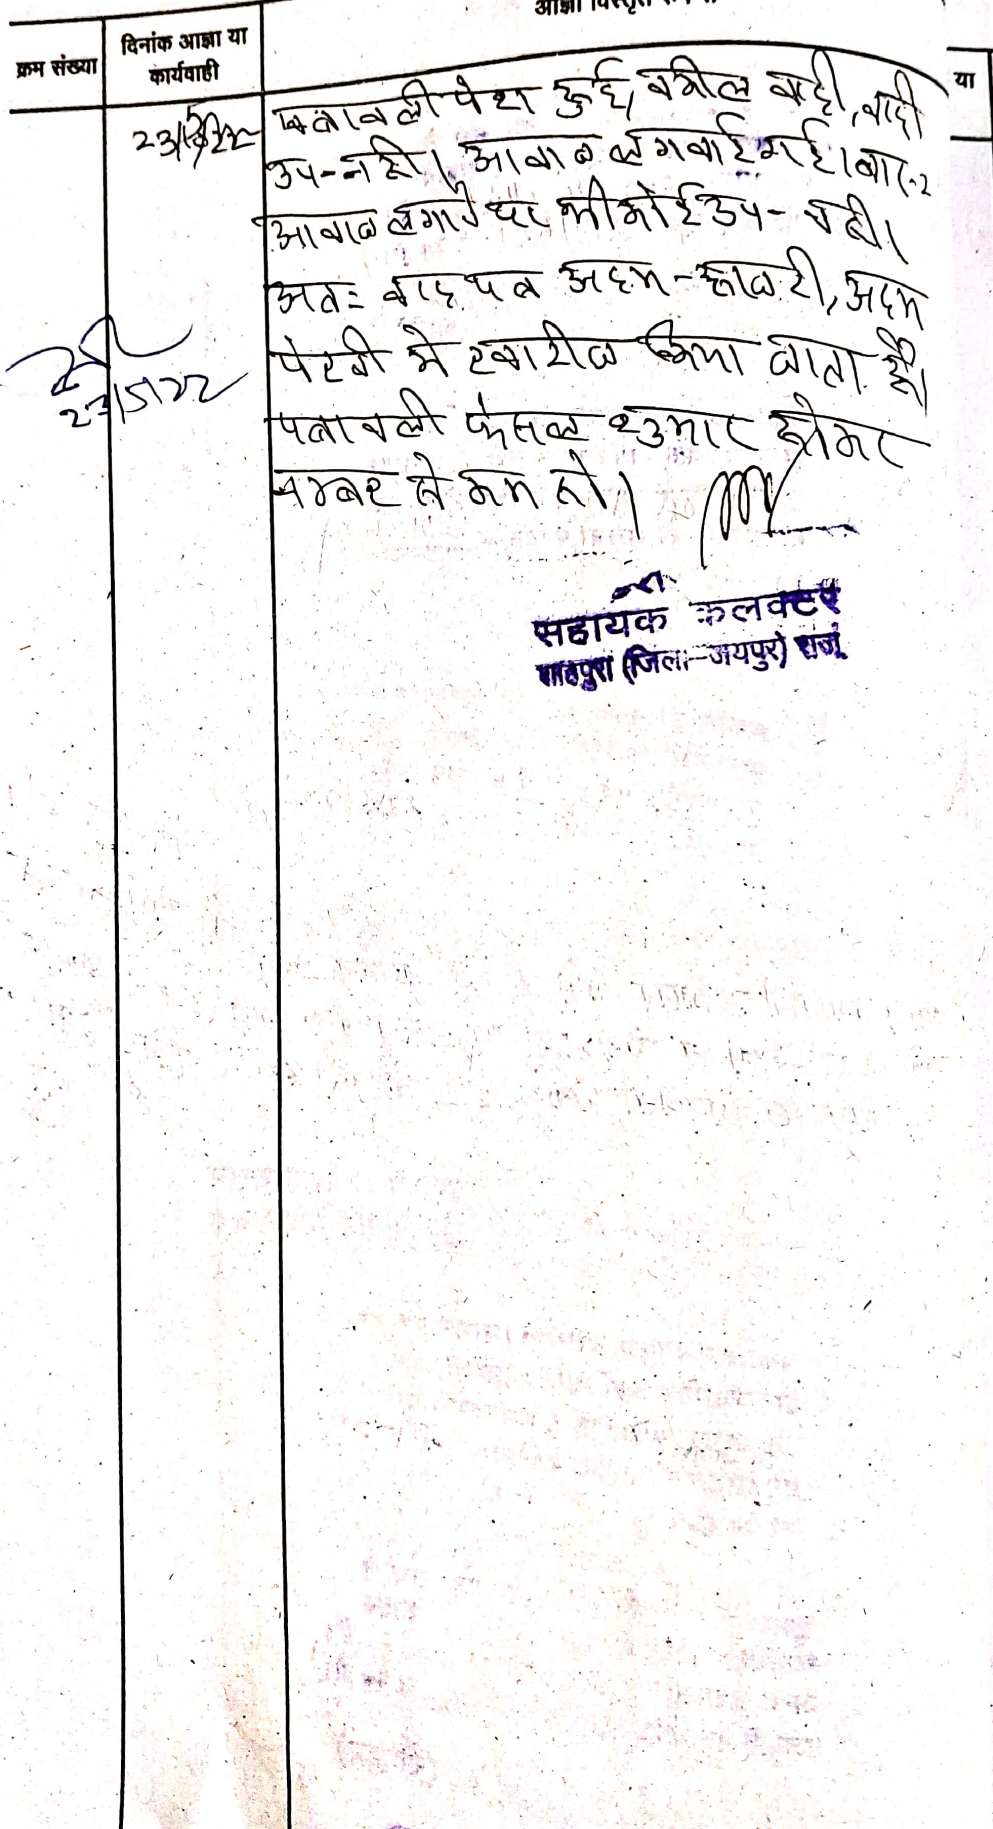 आज्ञा विस्तृत
क्रम संख्या
दिनांक आज्ञा या
कार्यवाही
या
23/5/22
पत्रावली पेश हुई, वकील वादी, वादी
उप-नही। आवाज लगवाई गई। बार-2
आवाज लगाने पर भी कोई उप- नही।
अतः वाद पत्र अदम-हाजरी, अदम
पेरवी मे खारीज किया जाता है।
पत्रावली फेसल शुमार होकर
नम्बर से कम हो।
23/5/22
सहायक कलक्टर
शाहपुरा (जिला-जयपुर) राज.